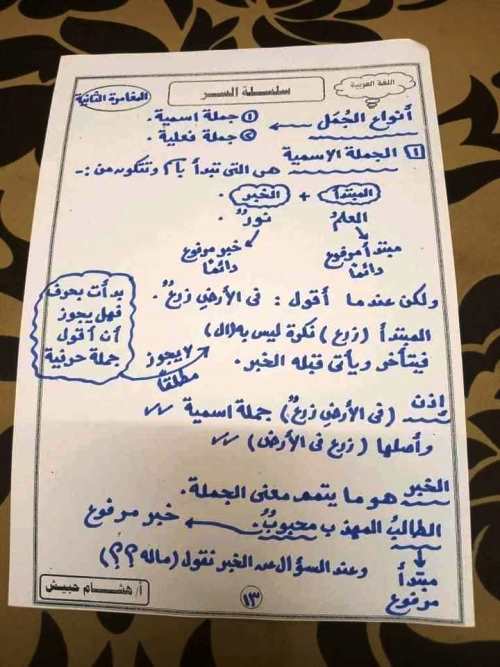 اللغة العربية
سلسلة السر
المغامرة الثانية
أنواع الجُمَل
① جملة اسمية.
② جملة فعلية.
١ الجملة الاسمية هى التى تبدأ باسم وتتكون من :-
المبتدأ + الخبر.
العلمُ نورٌ.
مبتدأ مرفوع دائمًا
خبر مرفوع دائمًا
ولكن عندما أقول : فى الأرضِ زرعٌ.
المبتدأ (زرع) نكرة ليس به (ال)
فيتأخر ويأتى قبله الخبر.
بدأت بحرف
فهل يجوز
أن أقول
جملة حرفية
لا يجوز
مطلقًا
إذن (فى الأرضِ زرعٌ) جملة اسمية
وأصلها (زرع فى الأرض)
الخبر هو ما يتمم معنى الجملة.
الطالبُ المهذب محبوبٌ.
خبر مرفوع
مبتدأ
مرفوع
وعند السؤال عن الخبر نقول (ماله ؟؟)
١٣
أ/ هشام حبيش